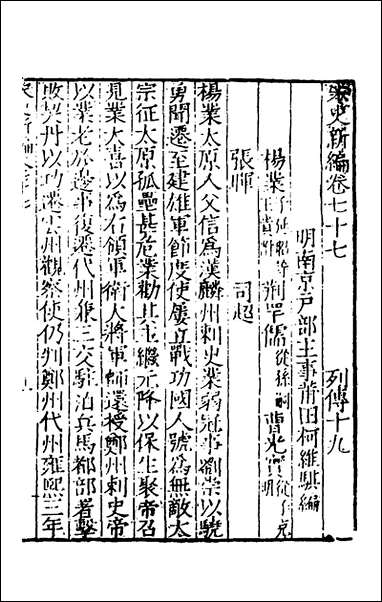 宋史新編卷七十七　列傳十九
明南京戶部主事莆田柯維騏編
楊業子延昭等 王貴附 荊罕儒從孫嗣 曹光實從子克明
張暉　司超
楊業太原人父信為漢麟州刺史業弱冠事劉崇以驍
勇聞遷至建雄軍節度使屢立戰功國人號為無敵太
宗征太原孤壘甚危業勸其主繼元降以保生聚帝召
見業大喜以為右領軍衛大將軍師還授鄭州刺史帝
以業老於邊事復遷代州兼三交駐泊兵馬都部署擊
敗契丹以功遷雲州觀察使仍判鄭州代州雍熙三年